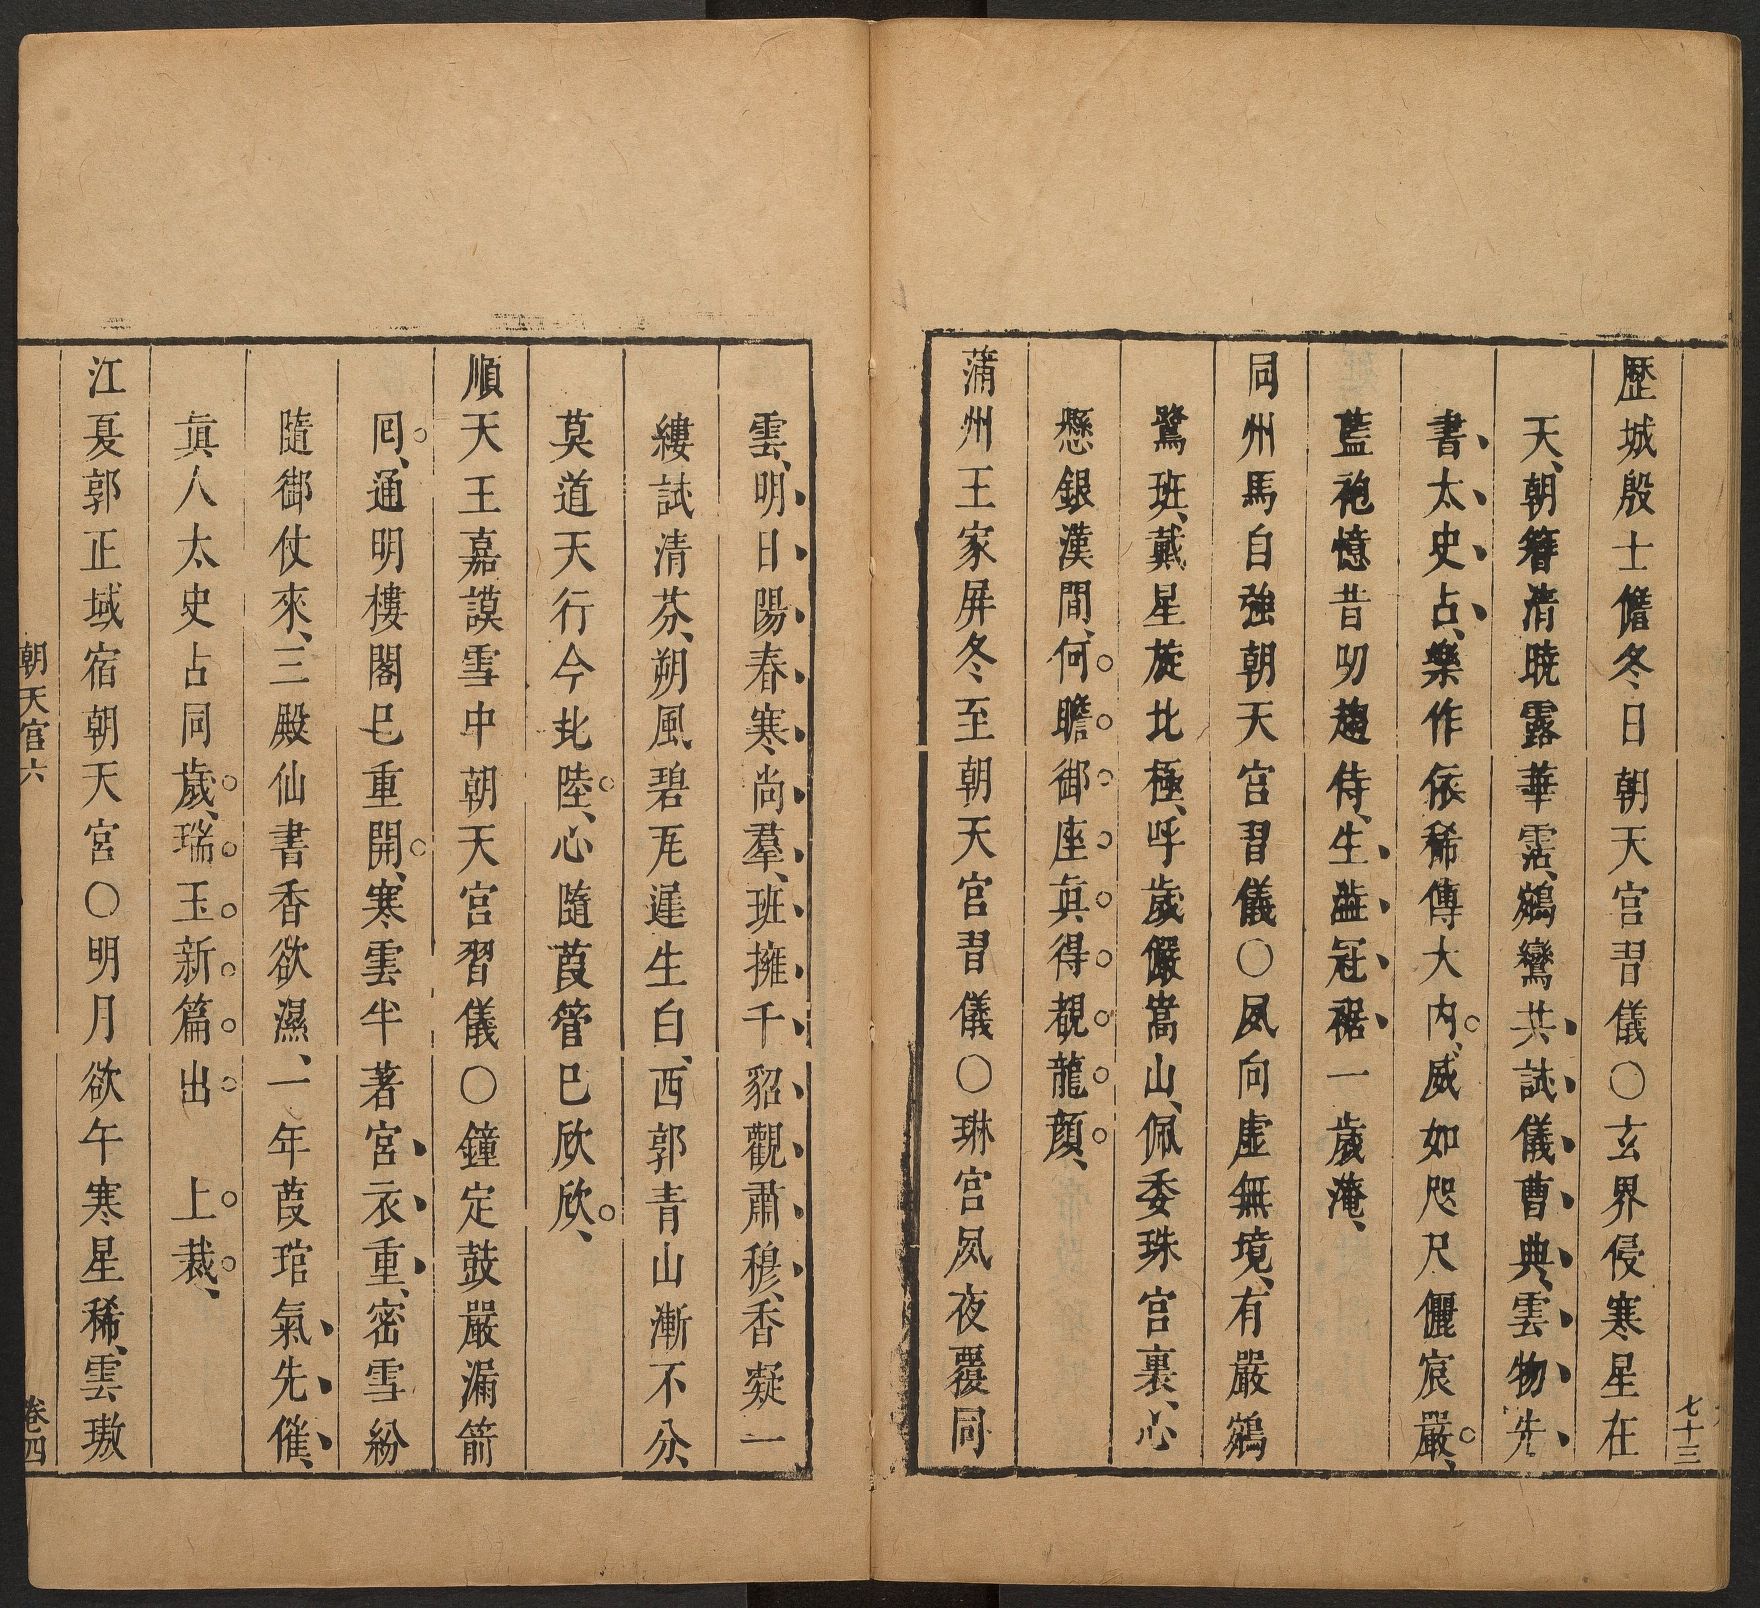 七十三
歷城殷士儋冬日朝天宮習儀○玄界侵寒星在
天、朝簪清曉露華霑、鵷鸞共誌儀曹典、雲物先
書太史占、樂作依稀傳大內、威如咫尺儼宸嚴、
藍袍憶昔叨趨侍、生澁冠裾一歲淹、
同州馬自強朝天宮習儀○風向虛無境、有嚴鵷
鷺班、戴星旋北極、呼歲儼嵩山、佩委珠宮裏、心
懸銀漢間、何瞻御座眞得覩龍顏、
蒲州王家屏冬至朝天宮習儀○琳宮夙夜覆同
雲、明日陽春寒尚羣、班擁千貂觀肅穆、香凝一
縷試清芬、朔風碧瓦遲生白、西郭青山漸不分、
莫道天行今北陸、心隨葭管已欣欣、
順天王嘉謨雪中朝天宮習儀○鐘定鼓嚴漏箭
囘、通明樓閣已重開、寒雲半著宮衣重、密雪紛
隨御仗來、三殿仙書香欲濕、一年葭琯氣先催、
眞人太史占同歲、瑞玉新篇出 上裁、
江夏郭正域宿朝天宮○明月欲午寒星稀、雲璈
朝天宮六 卷四